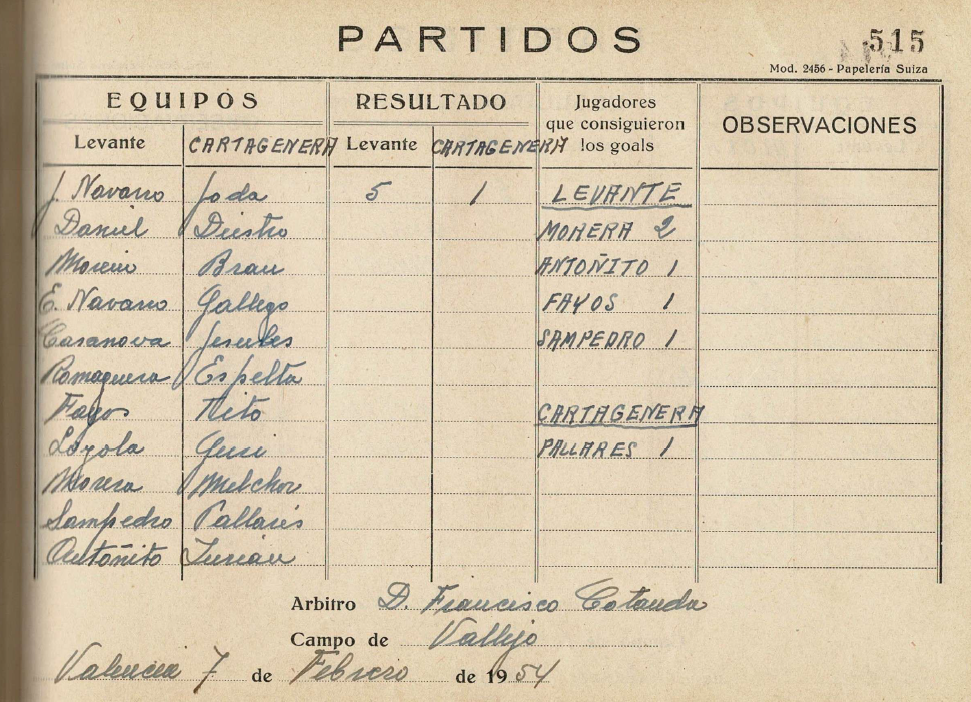 PARTIDOS
515
Mod. 2456 - Papelería Suiza
EQUIPOS RESULTADO Jugadores que consiguieron los goals OBSERVACIONES
Levante CARTAGENERA Levante CARTAGENERA
J. Navarro Joda 5 1 LEVANTE
Daniel Diestro MORERA 2
Moreno Brau ANTOÑITO 1
E. Navarro Gallego FAYOS 1
Casanova SAMPEDRO 1
Romaguera Espelta
Fayos Tito CARTAGENERA
Loyola PALLARES 1
Morera Melchor
Sampedro Pallarés
Antoñito
Arbitro D. Francisco Cotanda
Campo de Vallejo
Valencia 7 de Febrero de 1954